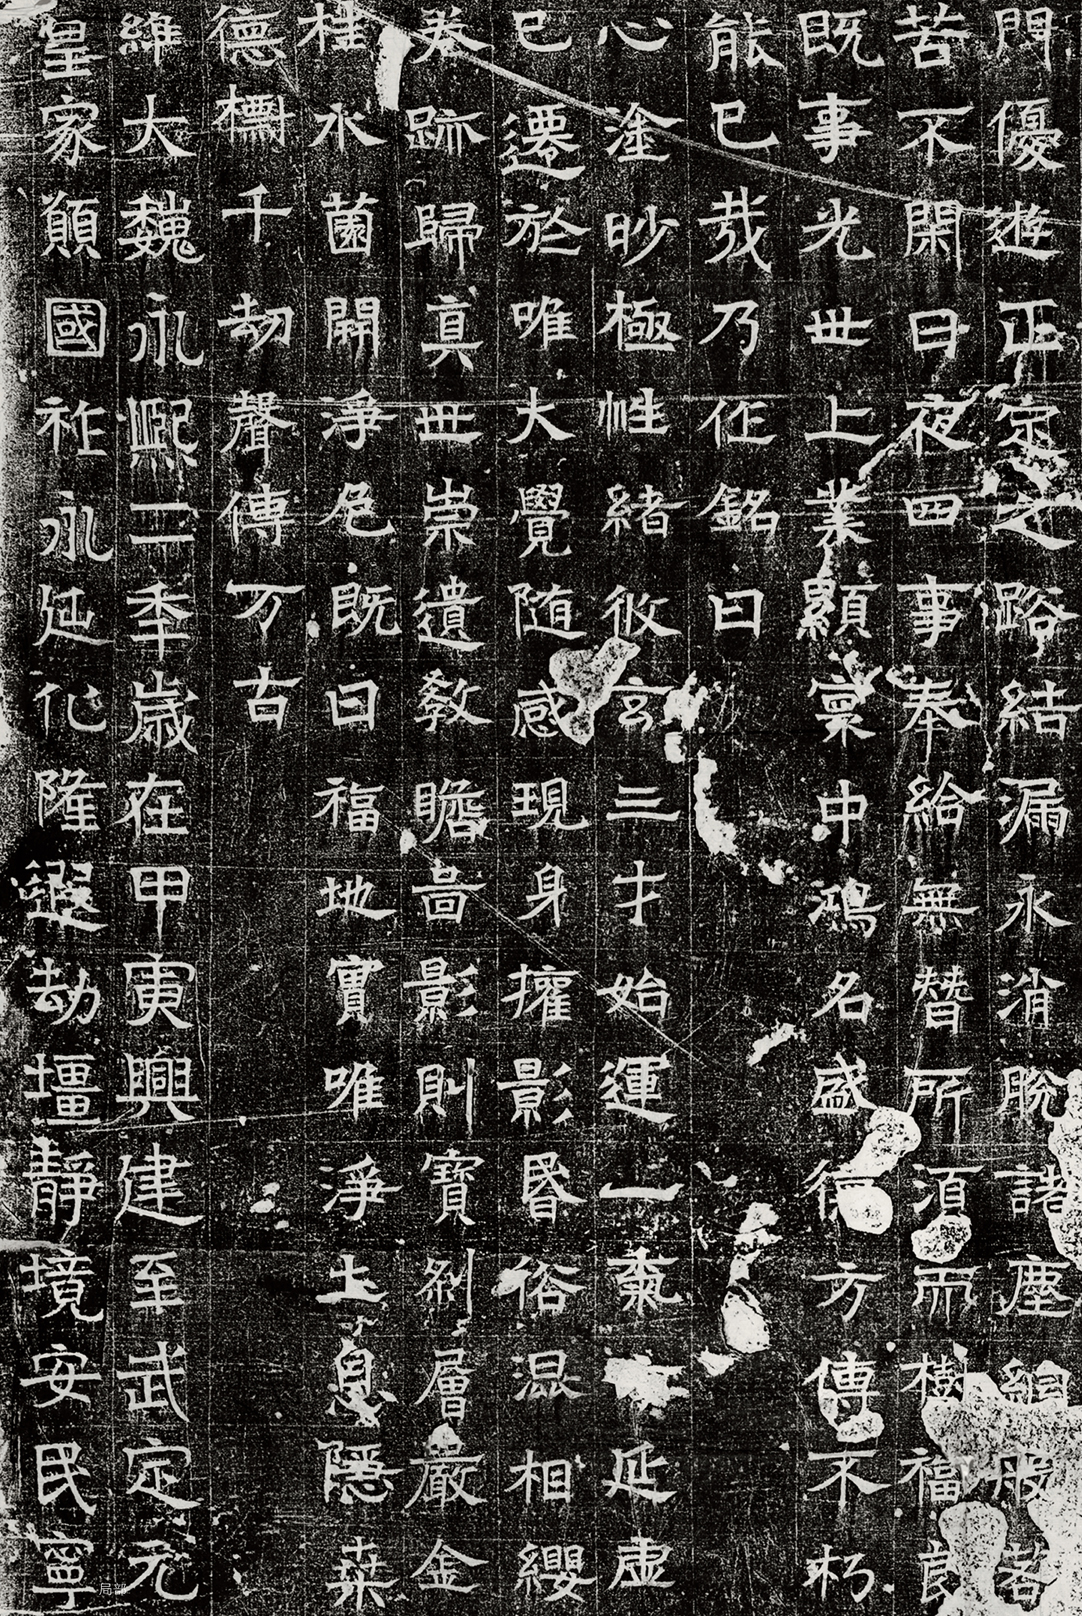 門優遊正定之路結漏永消脫諧塵細服若
苦不閑日夜四事奉給無替所須而樹福良
既事光世上業顯寰中鴻名盛德方傳不朽
能已哉乃作銘曰
心淦眇極性緒攸玄三才始運一氣延虛
已遷於唯大覺随感現身擢影昏俗混相纓
券跡歸真世崇遺教瞻啚影則寶剎層巖金
桂水薗開淨尼既曰福地實唯淨土息隱桒
德檷千劫聲傳万古
維大魏永熙二年歲在甲寅興建至武定元
皇家願國祚永延化隆遐劫壃靜境安民寧
局部